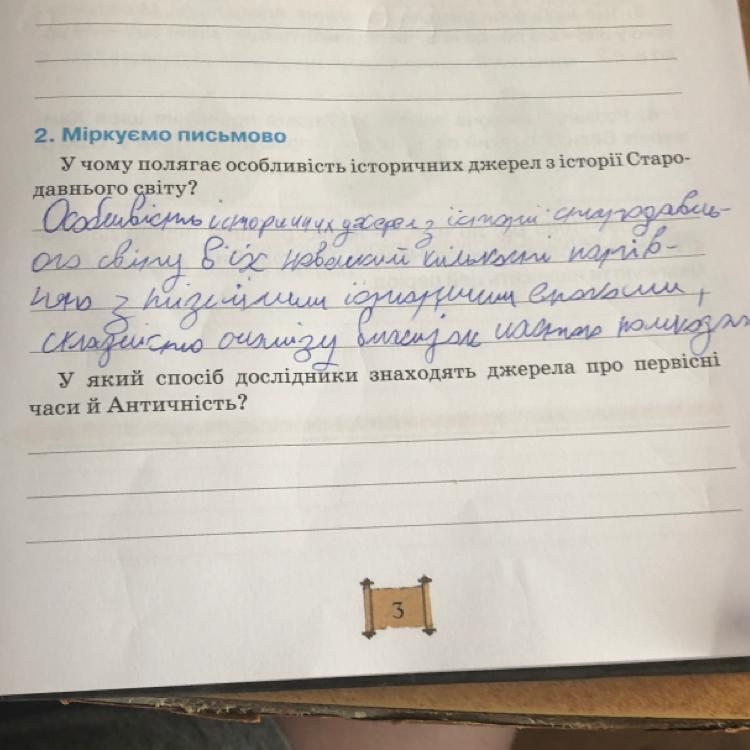 2. Міркуємо письмово
У чому полягає особливість історичних джерел з історії Старо-
давнього світу?
Особливість історичних джерел з історії стародавнь-
ого світу в їх невеликій кількості порів-
няно з пізнішими історичними епохами,
складністю аналізу внаслідок часто
У який спосіб дослідники знаходять джерела про первісні
часи й Античність?
3